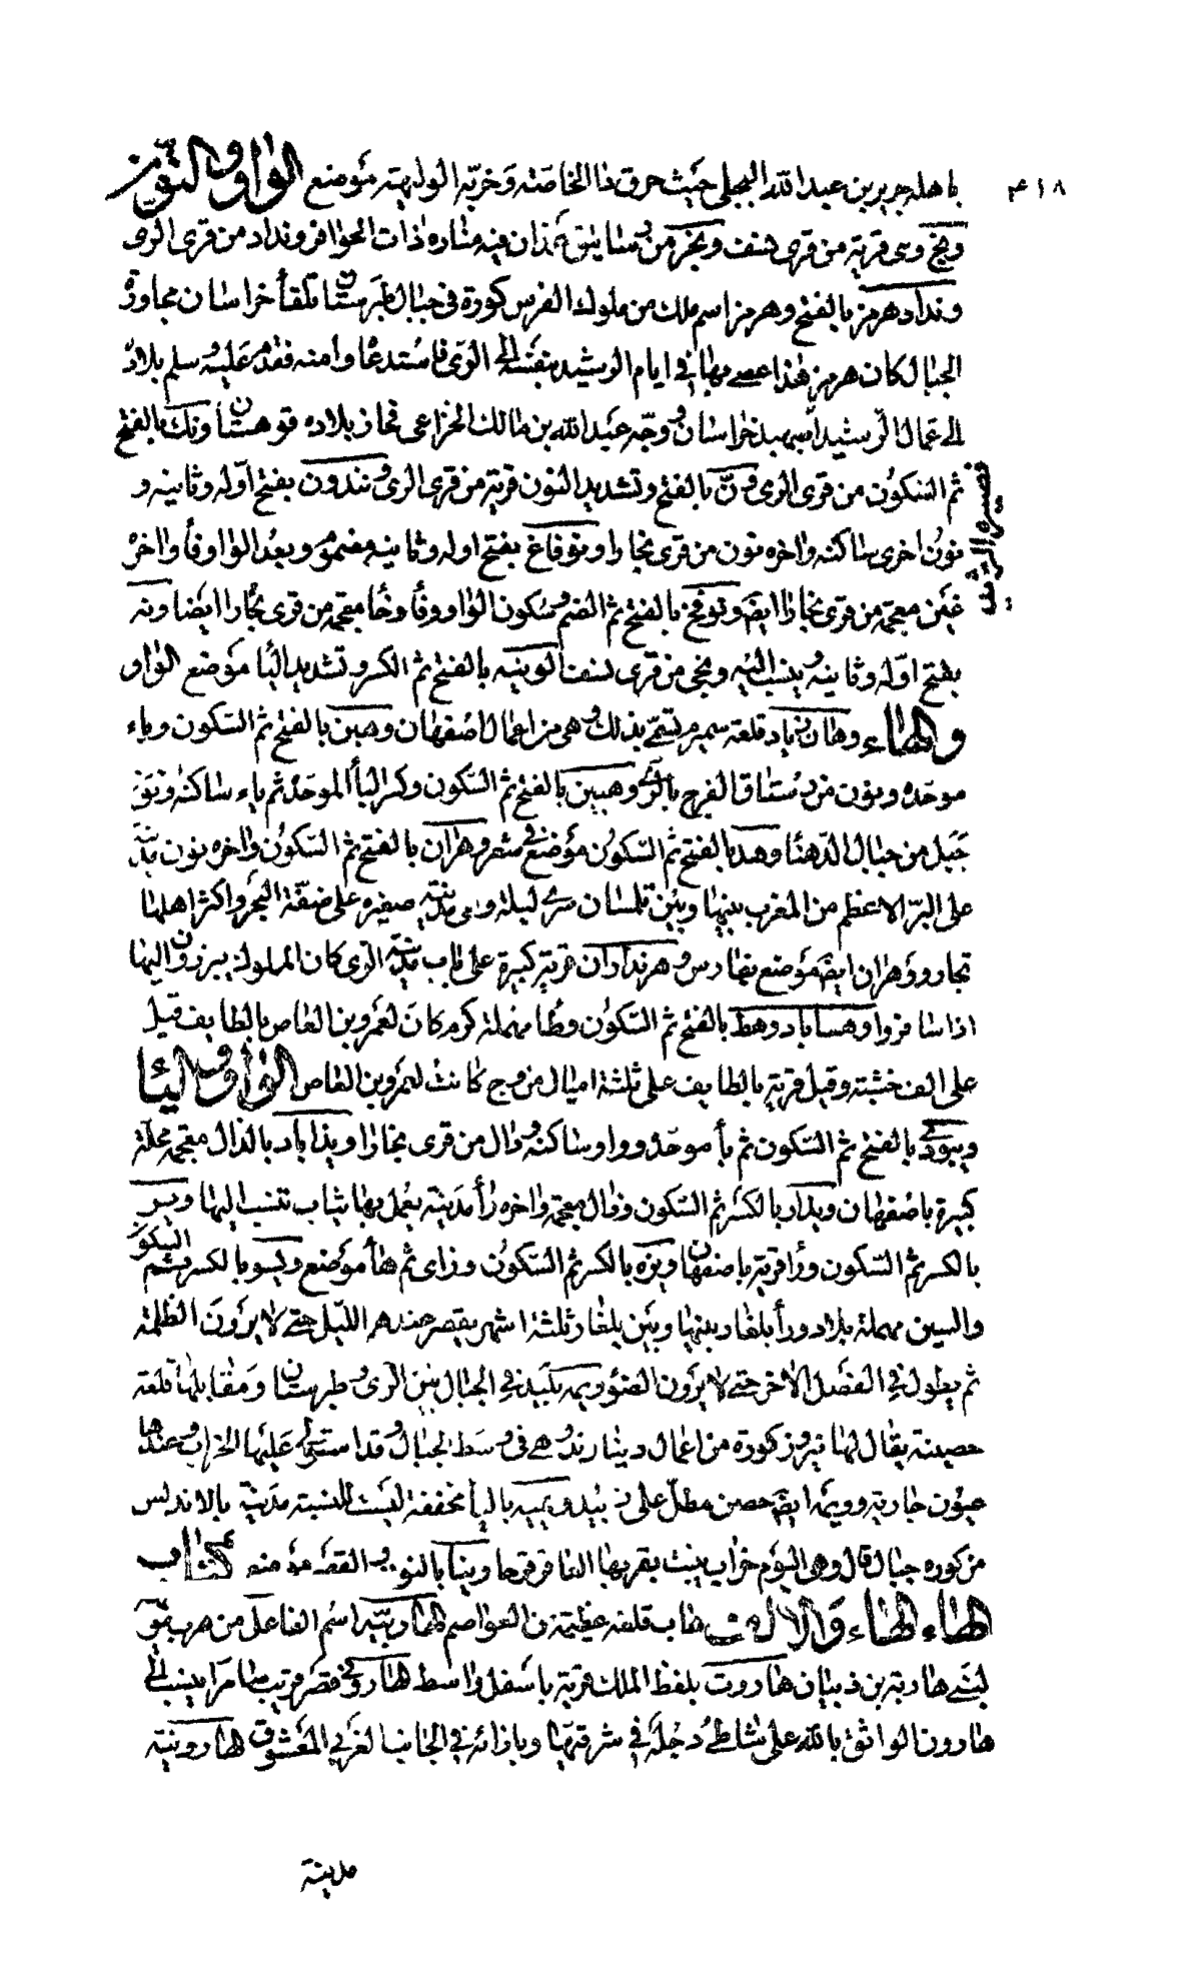 ۴۱۸
باهله جرير بن عبد الله البجلي حيث حرق ذا الخاصة وخربه الولهية موضع الواو والنون
ونج وهى قرية من قرى نسف ونجر من رستاق همذان فيه مناره ذات الحوافر ونداد من قرى الرى
ونداد هرمز بالفتح وهرمز اسم ملك من ملوك الفرس كورة فى جبال طبرستان تلقأ خراسان مجاورة
الجبال كان هرمز هذا عصى بها فى ايام الرشيد بنفسه الى الرى فاستدعا وامنه فقدم عليه وسلم بلاده
الى عمال الرشيد اسبهبد خراسان ووجه عبد الله بن مالك الخزاعى فحاز بلاده قوهستان ونك بالفتح
ثم السكون من قرى الرى ون بالفتح وتشديد النون قرية من قرى الرى وندون بفتح اوله وثانيه و
نون اخرى ساكنه واخره نون من قرى بخارا ونوفاغ بفتح اوله وثانيه مضموم وبعد الواو فأ واخره
غين معجمة من قرى بخارا ايضا ونوفخ بالفتح ثم الضم وسكون الواو وفأ وخا معجمة من قرى بخارا ايضا ونه
بفتح اوله وثانيه وينسب اليه ونجى من قرى نسف الونيه بالفتح ثم الكسر وتشديد اليأ موضع الواو
والهاء وهان زياد قلعة سميرم تسمى بذلك وهى من اعمال اصفهان وهبن بالفتح ثم السكون وباء
موحده ونون من رستاق الفرج بالرى وهبين بالفتح ثم السكون وكسر البأ الموحدة ثم ياء ساكنة ونون
جبل من جبال الدهنا وهد بالفتح ثم السكون موضع فى شعر وهران بالفتح ثم السكون واخره نون مدينة
على البر الاعظم من المغرب بينها وبين تلمسان سرى ليلة وهى مدينة صغيرة على ضفة البحر واكثر اهلها
تجار ووهران ايضا موضع بفارس وهرنداوان قرية كبيرة على باب مدينة الرى كان الملوك يبرزون اليها
اذا سافروا وهساباد وهط بالفتح ثم السكون وطا مهملة كرم كان لعمرو بن العاص بالطايف قيل
على الف خشبته وقيل قرية بالطايف على ثلثة اميال من وج كانت لعمرو بن العاص الواو واليا
ويبودى بالفتح ثم السكون ثم بأ موحدة وواو ساكنه ودال من قرى بخارا ويذاباد بالذال معجمة محلة
كبيرة باصفهان ويذار بالكسر ثم السكون وذال معجمة واخره رأ مدينة يعمل بها ثياب تنسب اليها وير
بالكسر ثم السكون ورأ قرية باصفهان ويزه بالكسر ثم السكون وزاى ثم هأ موضع ويسو بالكسر ثم السكون
والسين مهملة بلاد ورأ بلغار بينها وبين بلغار ثلثة اشهر يقصر عندهم الليل حتى لا يرون الظلمة
ثم يطول فى الفصل الاخر حتى لا يرون الضؤ ويمه بليد فى الجبال بين الرى وطبرستان ومقابلها قلعة
حصينة يقال لها فيروز كورة من اعمال دينارند وهى فى وسط الجبال وقد استولى عليها الخراب وعندها
عيون جارية وويمه ايضا حصن مطل على زبيد ويميه باليأ مخففة ليست للنسبة مدينة بالاندلس
من كورة جبال قال وهى اليوم خراب ينبت بقربها العاقرقرحا وينا بالنون والقصر موضع كتاب
الهاء الهاء والالف هاب قلعة عظيمة من العواصم الهاربيه اسم الفاعل من هرب
لبنى هاربة بن ذبيان هاروت بلفظ الملك قرية باسفل واسط الهارونى قصر قريب سامرا ينسب الى
هارون الواثق بالله على شاطئ دجلة فى شرقيها وبازائه فى الجانب الغربى المعشوق الهارونية
مدينة